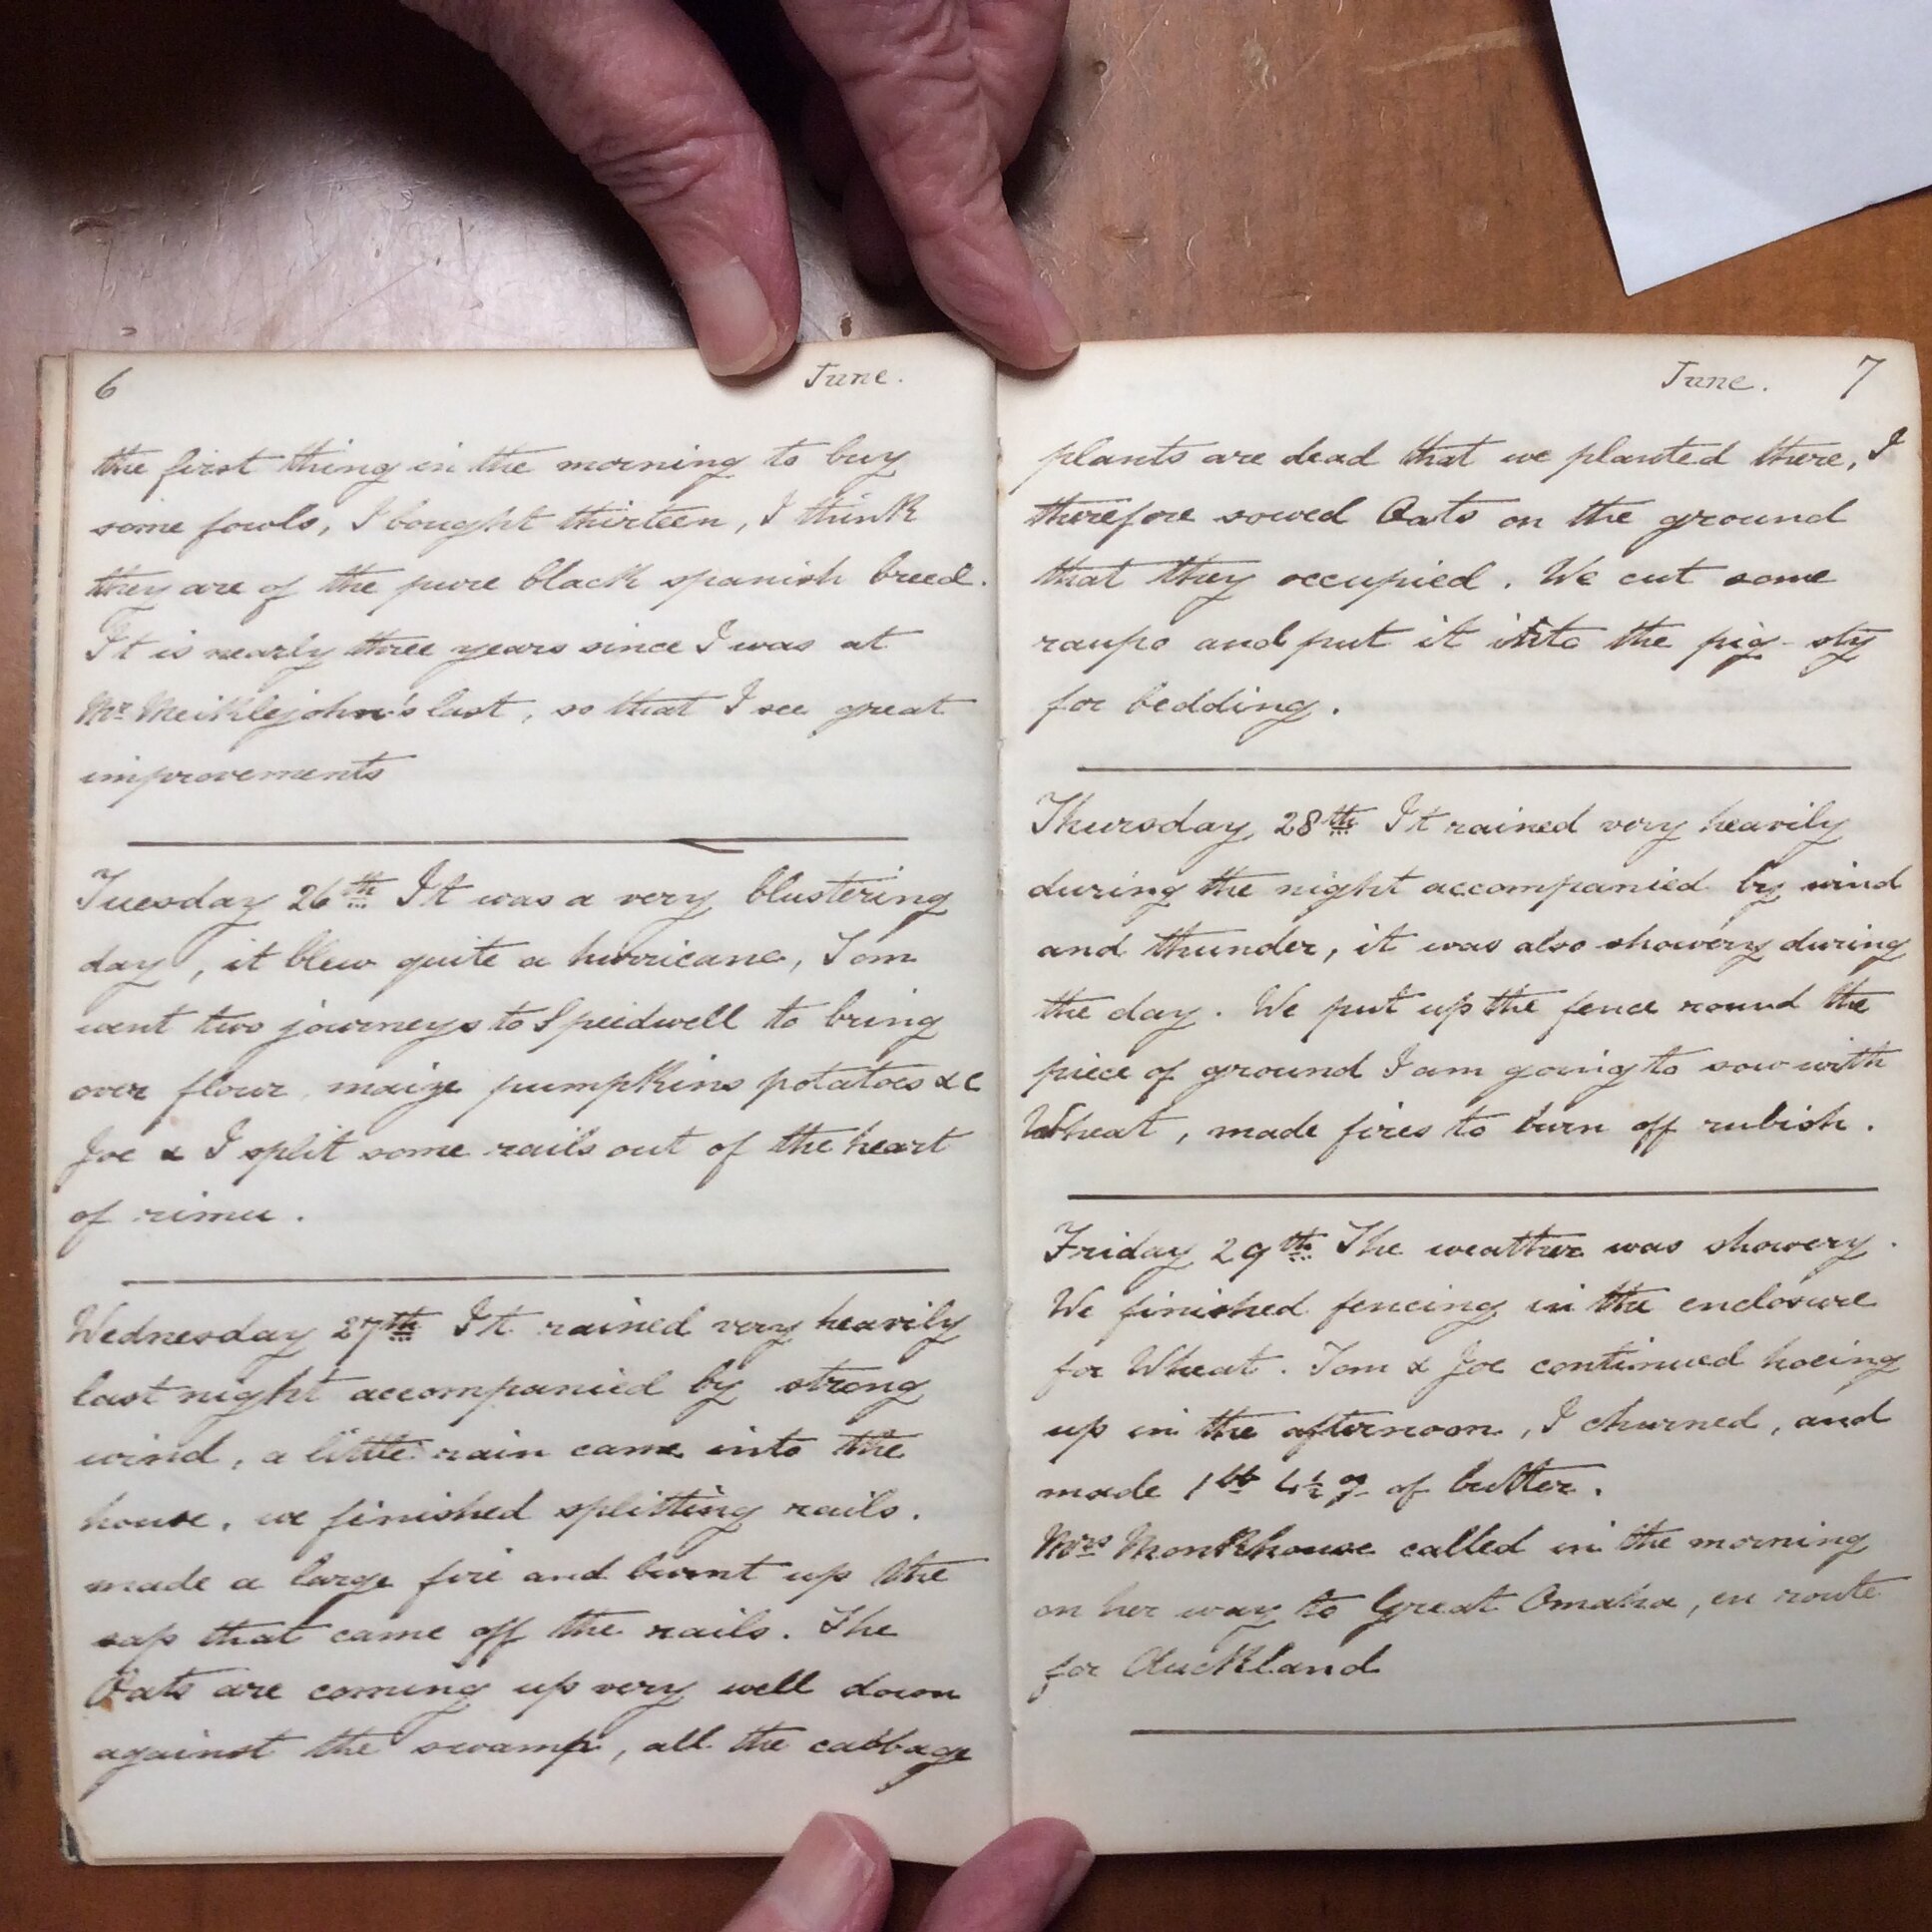 6 June.
the first thing in the morning to buy
some fowls, I bought thirteen, I think
they are of the pure black spanish breed.
It is nearly three years since I was at
Mr Meiklejohn's last, so that I see great
improvements
Tuesday 26th It was a very blustering
day, it blew quite a hurricane, Tom
went two journeys to Speedwell to bring
over flour, maize pumpkins potatoes &c
Joe & I split some rails out of the heart
of rimu.
Wednesday 27th It rained very heavily
last night accompanied by strong
wind, a little rain came into the
house, we finished splitting rails.
made a large fire and burnt up the
sap that came off the rails. The
Oats are coming up very well down
against the swamp, all the cabbage
June. 7
plants are dead that we planted there, I
therefore sowed Oats on the ground
that they occupied. We cut some
raupo and put it into the pig-sty
for bedding.
Thursday 28th It rained very heavily
during the night accompanied by wind
and thunder, it was also showery during
the day. We put up the fence round the
piece of ground I am going to sow with
Wheat, made fires to burn off rubish.
Friday 29th The weather was showery.
We finished fencing in the enclosure
for Wheat. Tom & Joe continued hoeing
up in the afternoon, I churned, and
made 1lb 4½ oz of butter.
Mrs Monkhouse called in the morning
on her way to Great Omaha, en route
for Auckland